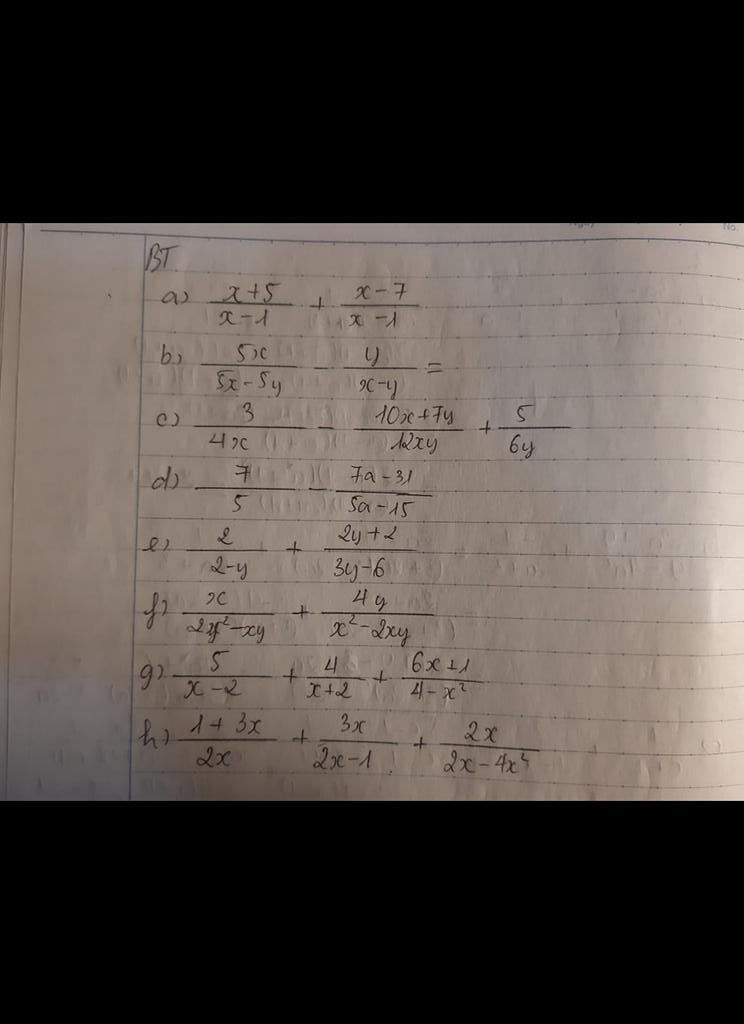 No.
BT
a) \frac{x+5}{x-1} + \frac{x-7}{x-1}
b) \frac{5x}{5x-5y} - \frac{y}{x-y} =
c) \frac{3}{4x} - \frac{10x+7y}{12xy} + \frac{5}{6y}
d) \frac{7}{5} - \frac{7a-31}{5a-15}
e) \frac{2}{2-y} + \frac{2y+2}{3y-6}
f) \frac{x}{2y^2-xy} + \frac{4y}{x^2-2xy}
g) \frac{5}{x-2} + \frac{4}{x+2} + \frac{6x+1}{4-x^2}
h) \frac{1+3x}{2x} + \frac{3x}{2x-1} + \frac{2x}{2x-4x^2}